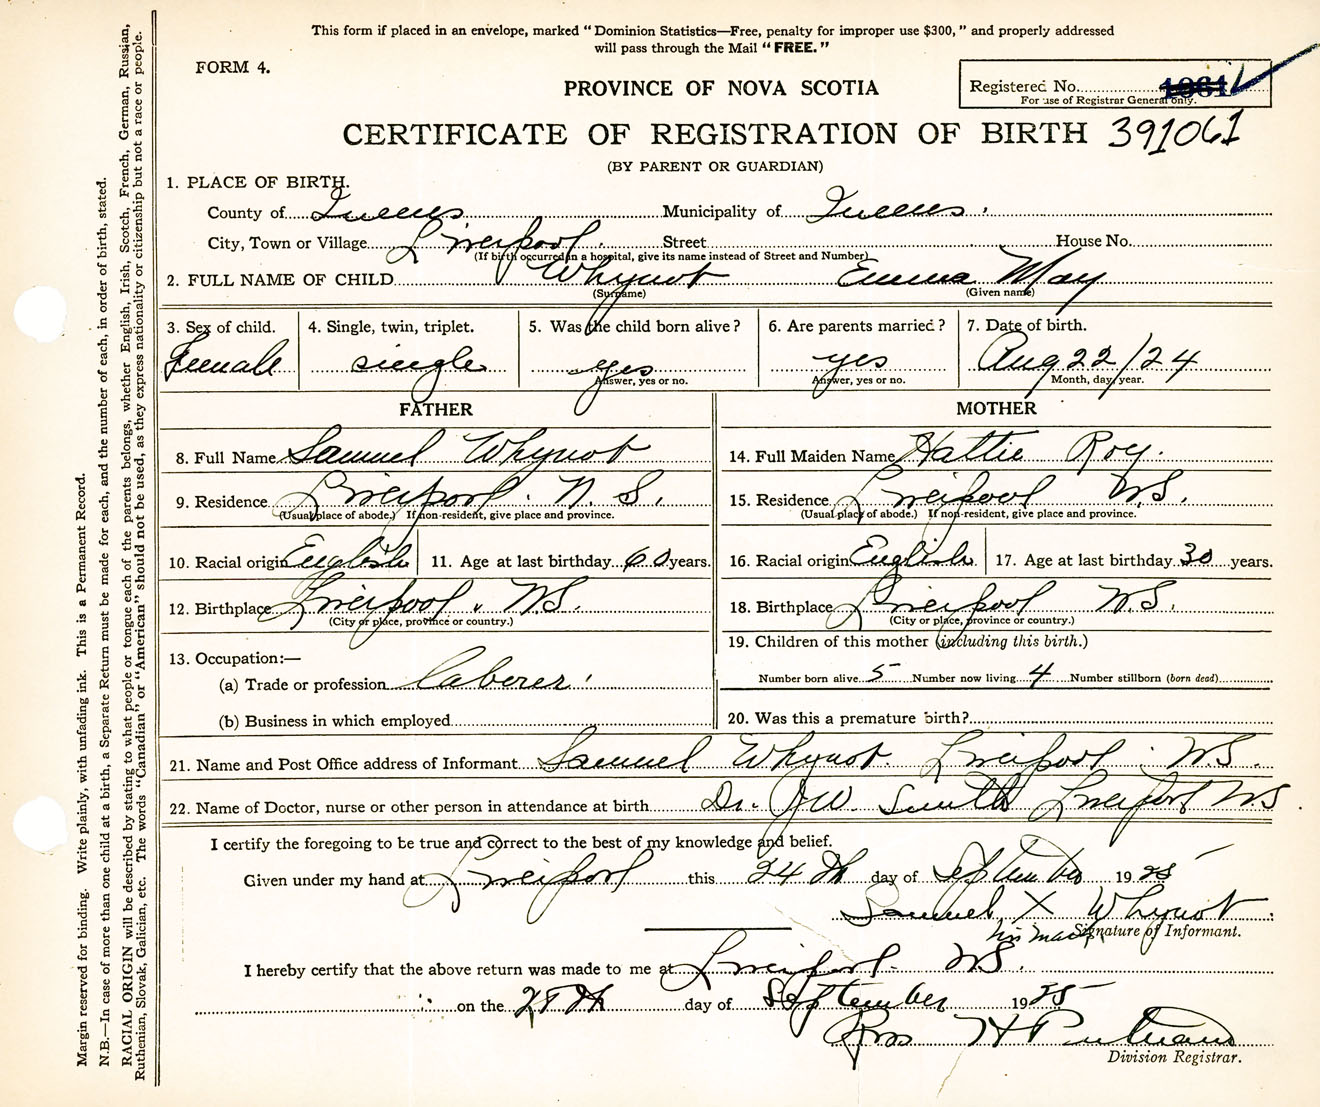 This form if placed in an envelope, marked "Dominion Statistics—Free, penalty for improper use $300," and properly addressed
will pass through the Mail "FREE."
FORM 4.
PROVINCE OF NOVA SCOTIA
Registered No. 1061
For use of Registrar General only.
CERTIFICATE OF REGISTRATION OF BIRTH 391061
(BY PARENT OR GUARDIAN)
1. PLACE OF BIRTH.
County of Queens Municipality of Queens.
City, Town or Village Liverpool. Street House No.
(If birth occurred in a hospital, give its name instead of Street and Number)
2. FULL NAME OF CHILD Whynot Emma May
(Surname) (Given name)
3. Sex of child. 4. Single, twin, triplet. 5. Was the child born alive? 6. Are parents married? 7. Date of birth.
Female single yes yes Aug 22/24
Answer, yes or no. Answer, yes or no. Month, day, year.
FATHER MOTHER
8. Full Name Samuel Whynot 14. Full Maiden Name Hattie Roy.
9. Residence Liverpool. N. S. 15. Residence Liverpool N.S.
(Usual place of abode.) If non-resident, give place and province. (Usual place of abode.) If non-resident, give place and province.
10. Racial origin English 11. Age at last birthday 60 years. 16. Racial origin English 17. Age at last birthday 30 years.
12. Birthplace Liverpool. N.S. 18. Birthplace Liverpool N.S.
(City or place, province or country.) (City or place, province or country.)
13. Occupation:— 19. Children of this mother (including this birth.)
(a) Trade or profession laborer. Number born alive 5 Number now living 4 Number stillborn (born dead)
(b) Business in which employed 20. Was this a premature birth?
21. Name and Post Office address of Informant Samuel Whynot. Liverpool. N.S.
22. Name of Doctor, nurse or other person in attendance at birth Dr. J W Smith Liverpool N.S.
I certify the foregoing to be true and correct to the best of my knowledge and belief.
Given under my hand at Liverpool this 24th day of September 1925
Samuel X Whynot
his mark Signature of Informant.
I hereby certify that the above return was made to me at Liverpool. N.S.
on the 28th day of September 1925
H Putnam
Division Registrar.
Margin reserved for binding. Write plainly, with unfading ink. This is a Permanent Record.
N.B.—In case of more than one child at a birth, a Separate Return must be made for each, and the number of each, in order of birth, stated.
RACIAL ORIGIN will be described by stating to what people or tongue each of the parents belongs, whether English, Irish, Scotch, French, German, Russian,
Ruthenian, Slovak, Galician, etc. The words "Canadian" or "American" should not be used, as they express nationality or citizenship but not a race or people.